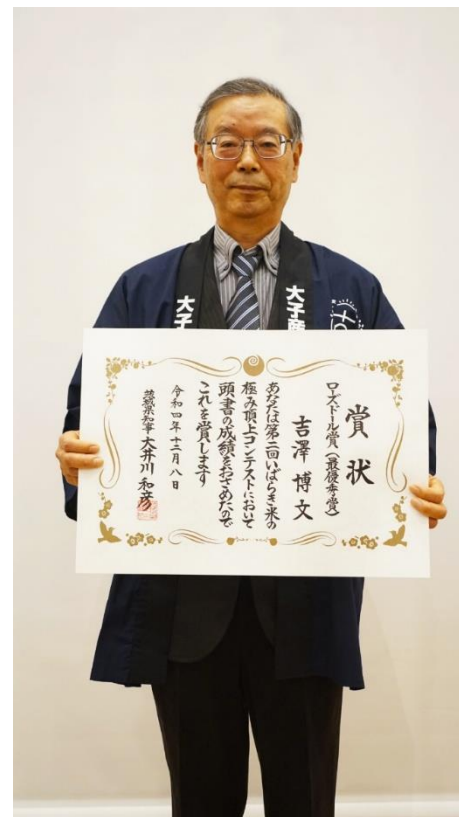 賞状
ローズドール賞(最優秀賞)
吉澤博文
あなたは第二回いばらき米の
極み頂上コンテストにおいて
頭書の成績をおさめたので
これを賞します
令和四年十二月八日
茨城県知事 大井川和彦
大子産
大子